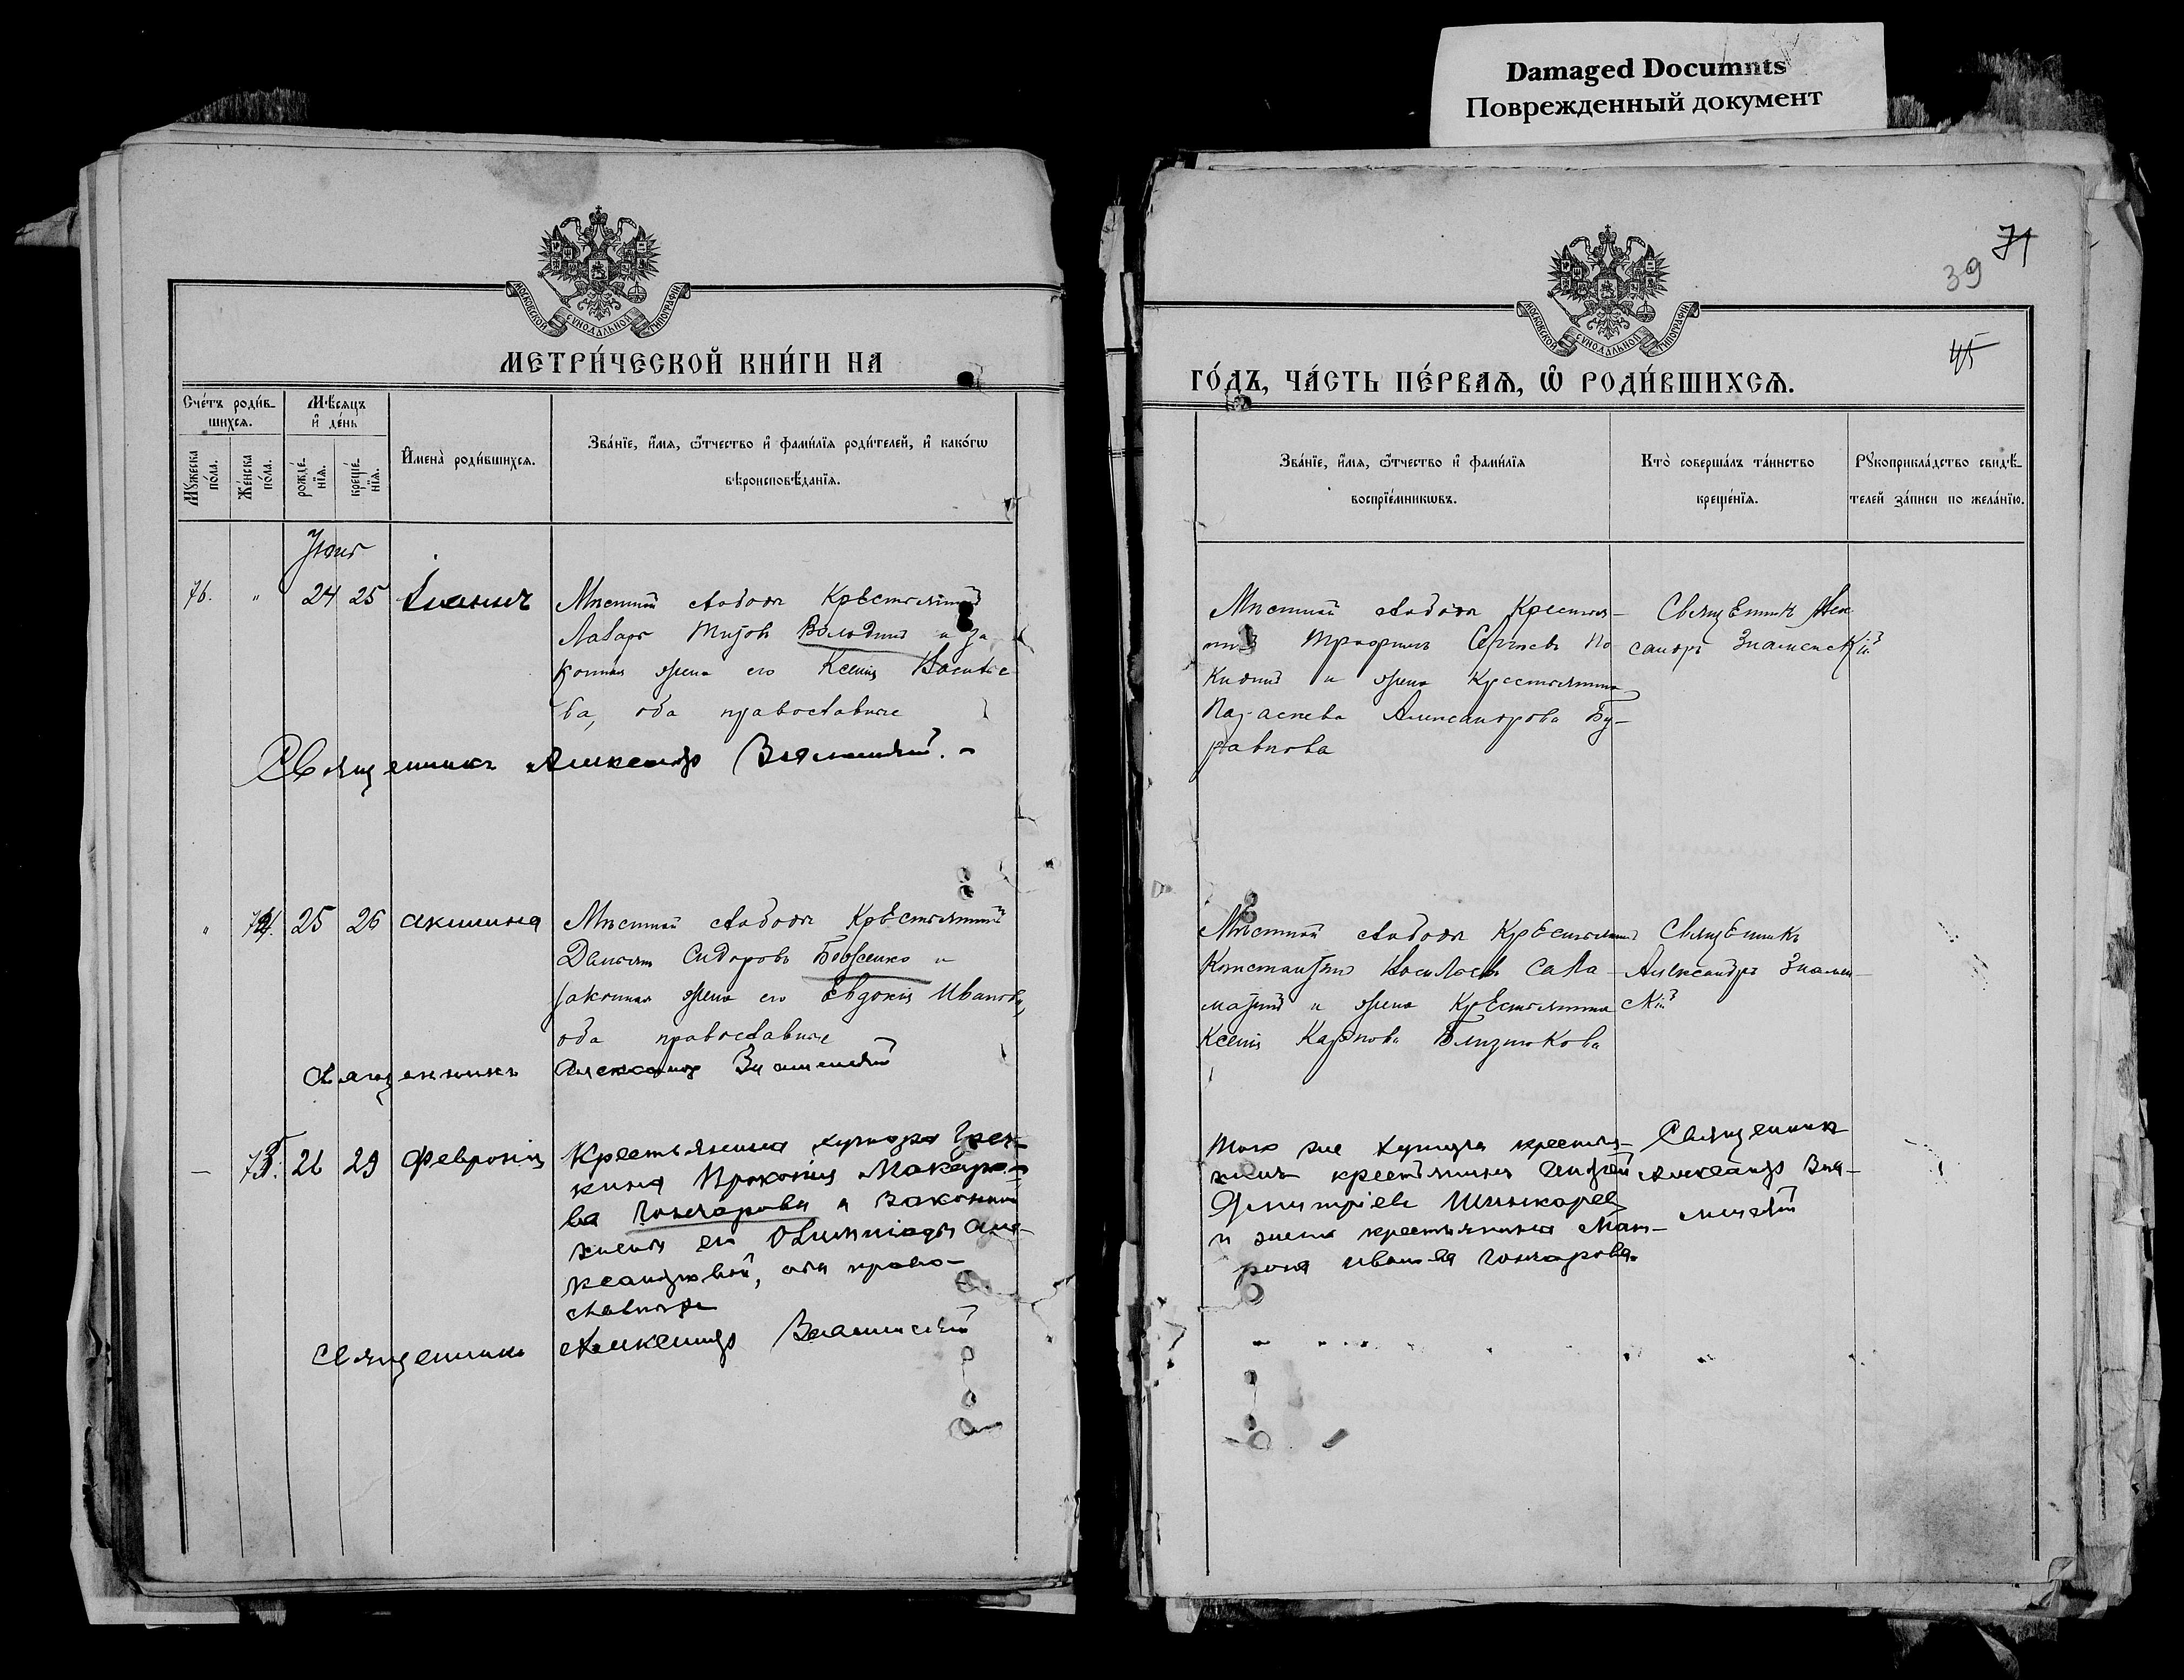 Damaged Documnts
Поврежденный документ
МОСКОВСКОЙ СѴНОДАЛЬНОЙ ТИПОГРАФІИ
МЕТРИ́ЧЕСКОЙ КНИ́ГИ НА
Сче́тъ роди́в-
шихсѧ.
Мѣ́сѧцъ
и҆ де́нь
Мꙋ́жеска
по́ла.
Же́нска
по́ла.
рожде́-
нїѧ.
креще́-
нїѧ.
И҆мена̀ роди́вшихсѧ.
Зва́нїе, и҆́мѧ, ѻ҆́тчество и҆ фами́лїѧ роди́телей, и҆ како́гѡ
вѣроисповѣ́данїѧ.
Іюнь
76. " 24 25 Іоаннъ
Мѣстной слободы Крестьянинъ
Лазарь Титовъ и за
конная жена его Ксенія Василье
ва, оба православные
Священникъ Александръ Знаменскій.
" 74. 25 26 Акилина
Мѣстной слободы Крестьянинъ
Сидоровъ Бовженко и
законная жена его Евдокія Иванова,
оба православные
Священникъ Александръ Знаменскій
— 75. 26 29 Февронія
Крестьянина хутора Греч-
кина Прокопія Макаро-
ва Гончарова и законной
жены его Олимпіады Але-
ксандровой, оба право-
славные
Священникъ Александръ Знаменскій
71
39
45
МОСКОВСКОЙ СѴНОДАЛЬНОЙ ТИПОГРАФІИ
ГО́ДЪ, ЧА́СТЬ ПЕ́РВАѦ, Ѡ҆ РОДИ́ВШИХСѦ.
Зва́нїе, и҆́мѧ, ѻ҆́тчество и҆ фами́лїѧ
воспрїе́мникѡвъ.
Кто̀ соверша́лъ та́инство
креще́нїѧ.
Рꙋкоприкла́дство свидѣ́-
телей за́писи по жела́нїю.
Мѣстной слободы Крестья-
нинъ Трофимъ Сергѣевъ По
и жена Крестьянина
Параскева Александрова Бу-
равкова
Священникъ Алек
сандръ Знаменскій
Мѣстной слободы Крестьянинъ
Константинъ Васильевъ Сала-
и жена Крестьянина
Ксенія Карпова Близнюкова
Священникъ
Александръ Знамен-
скій
Того же хутора крестья-
нинъ крестьянинъ Андрей
Димитріевъ Шинкаревъ
и жена крестьянина Мат-
рона Иванова Гончарова.
Священникъ
Александръ Зна-
менскій